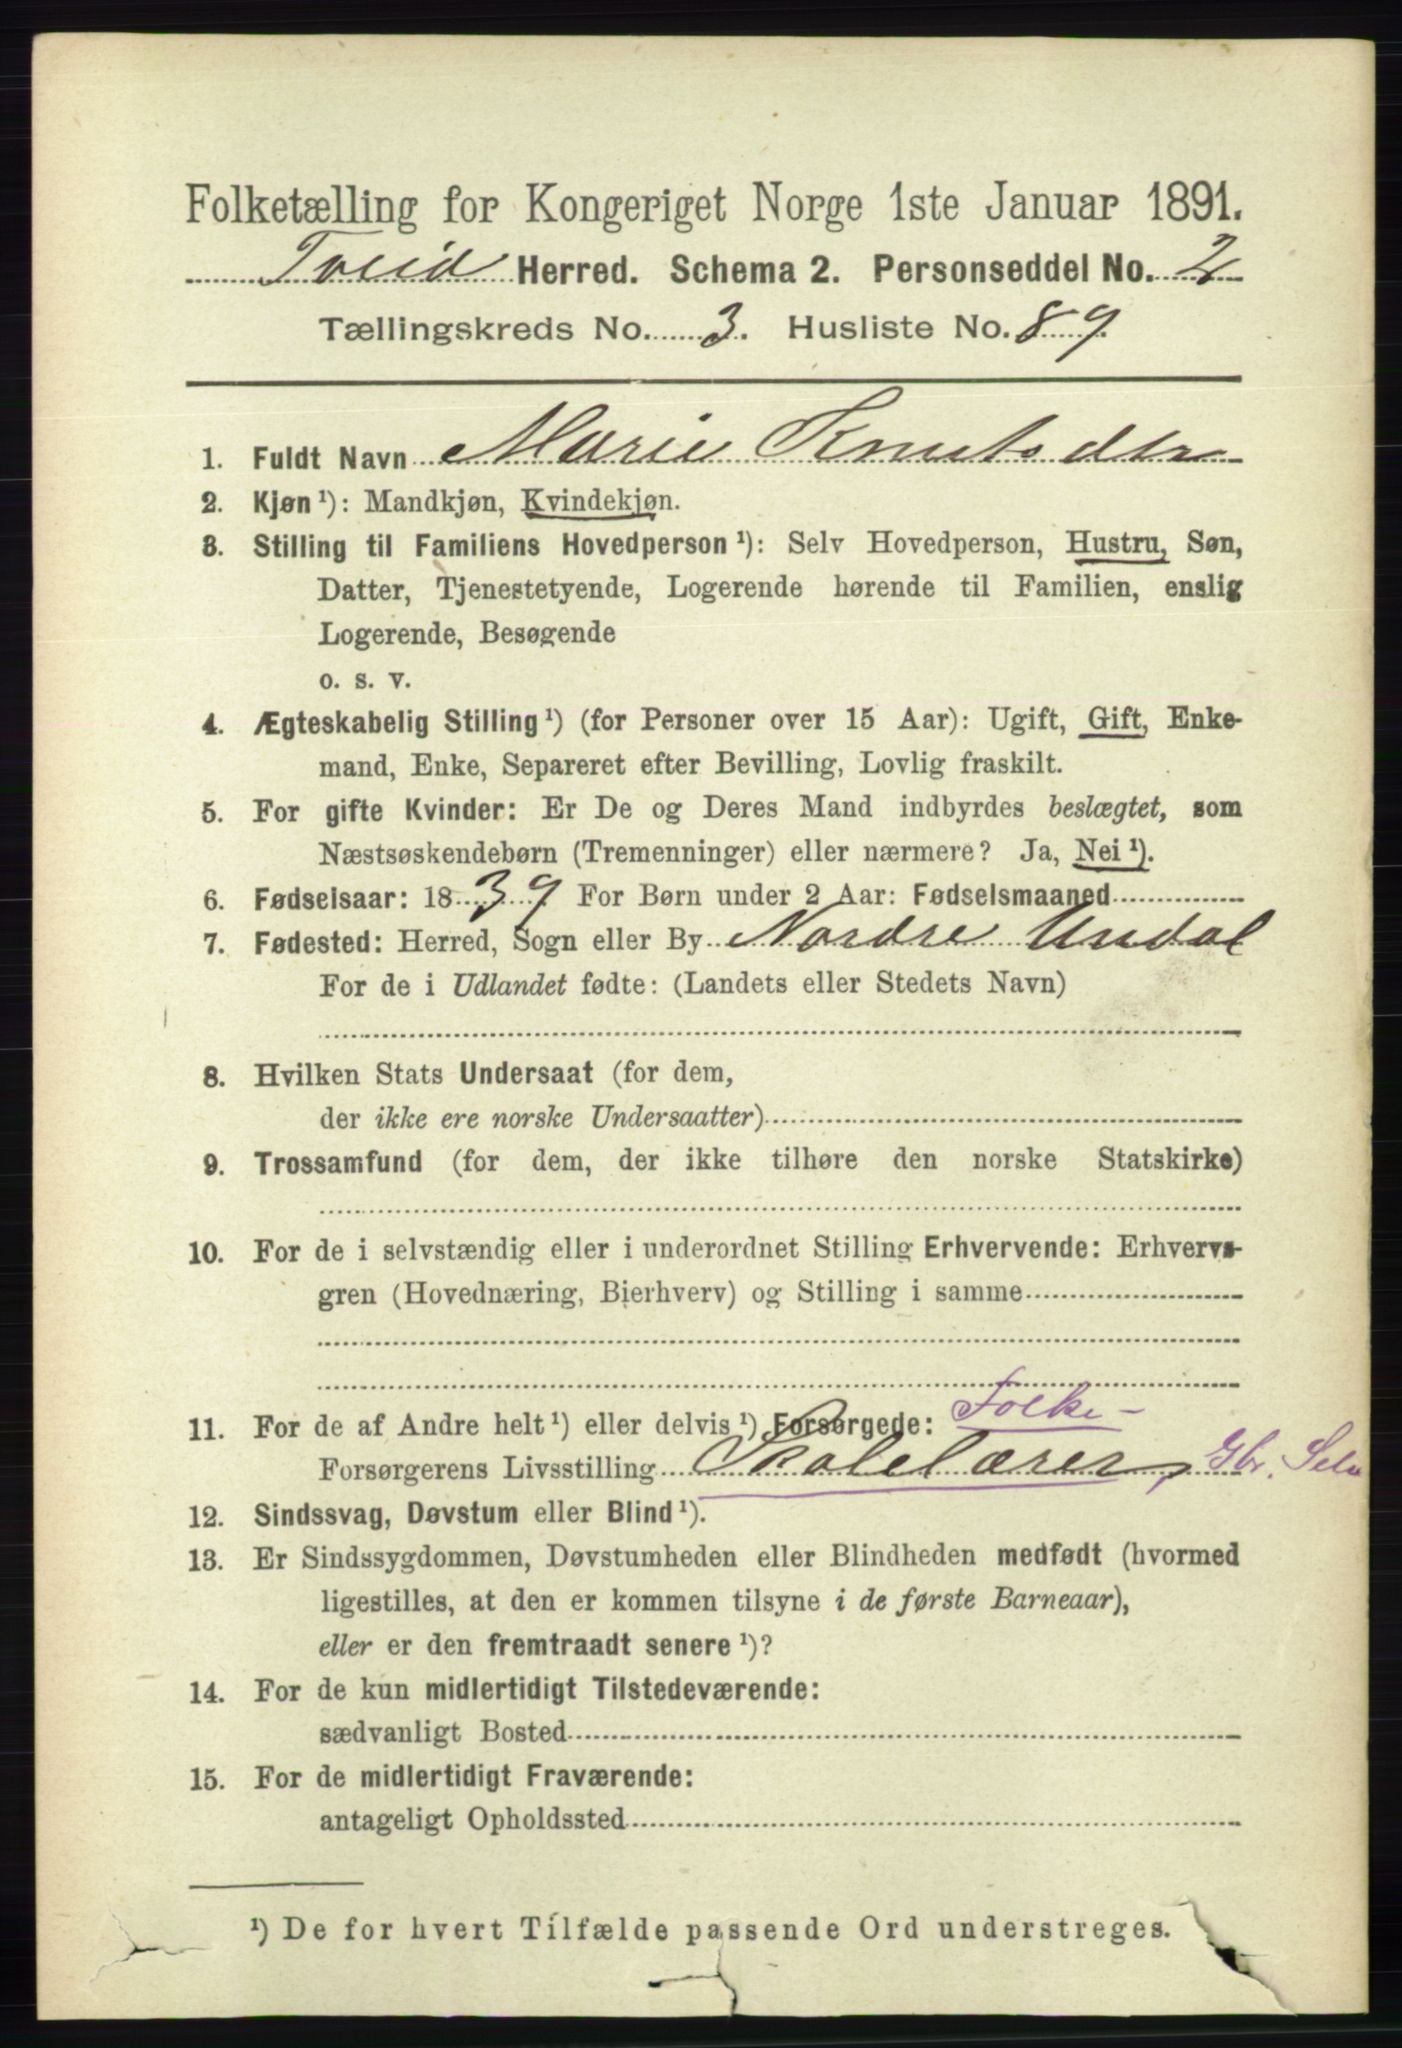 Folketælling for Kongeriget Norge 1ste Januar 1891.
Tveid Herred. Schema 2. Personseddel No. 2
Tællingskreds No. 3. Husliste No. 89
1. Fuldt Navn Marie Knutsdtr
2. Kjøn ¹): Mandkjøn, Kvindekjøn.
3. Stilling til Familiens Hovedperson ¹): Selv Hovedperson, Hustru, Søn,
Datter, Tjenestetyende, Logerende hørende til Familien, enslig
Logerende, Besøgende
o. s. v.
4. Ægteskabelig Stilling ¹) (for Personer over 15 Aar): Ugift, Gift, Enke-
mand, Enke, Separeret efter Bevilling, Lovlig fraskilt.
5. For gifte Kvinder: Er De og Deres Mand indbyrdes beslægtet, som
Næstsøskendebørn (Tremenninger) eller nærmere? Ja, Nei ¹).
6. Fødselsaar: 1839 For Børn under 2 Aar: Fødselsmaaned
7. Fødested: Herred, Sogn eller By Nordre Undal
For de i Udlandet fødte: (Landets eller Stedets Navn)
8. Hvilken Stats Undersaat (for dem,
der ikke ere norske Undersaatter)
9. Trossamfund (for dem, der ikke tilhøre den norske Statskirke)
10. For de i selvstændig eller i underordnet Stilling Erhvervende: Erhvervs-
gren (Hovednæring, Bierhverv) og Stilling i samme
Folke-
11. For de af Andre helt ¹) eller delvis ¹) Forsørgede:
Forsørgerens Livsstilling Skolelærer, Gbr. Selv
12. Sindssvag, Døvstum eller Blind ¹).
13. Er Sindssygdommen, Døvstumheden eller Blindheden medfødt (hvormed
ligestilles, at den er kommen tilsyne i de første Barneaar),
eller er den fremtraadt senere ¹)?
14. For de kun midlertidigt Tilstedeværende:
sædvanligt Bosted
15. For de midlertidigt Fraværende:
antageligt Opholdssted
¹) De for hvert Tilfælde passende Ord understreges.